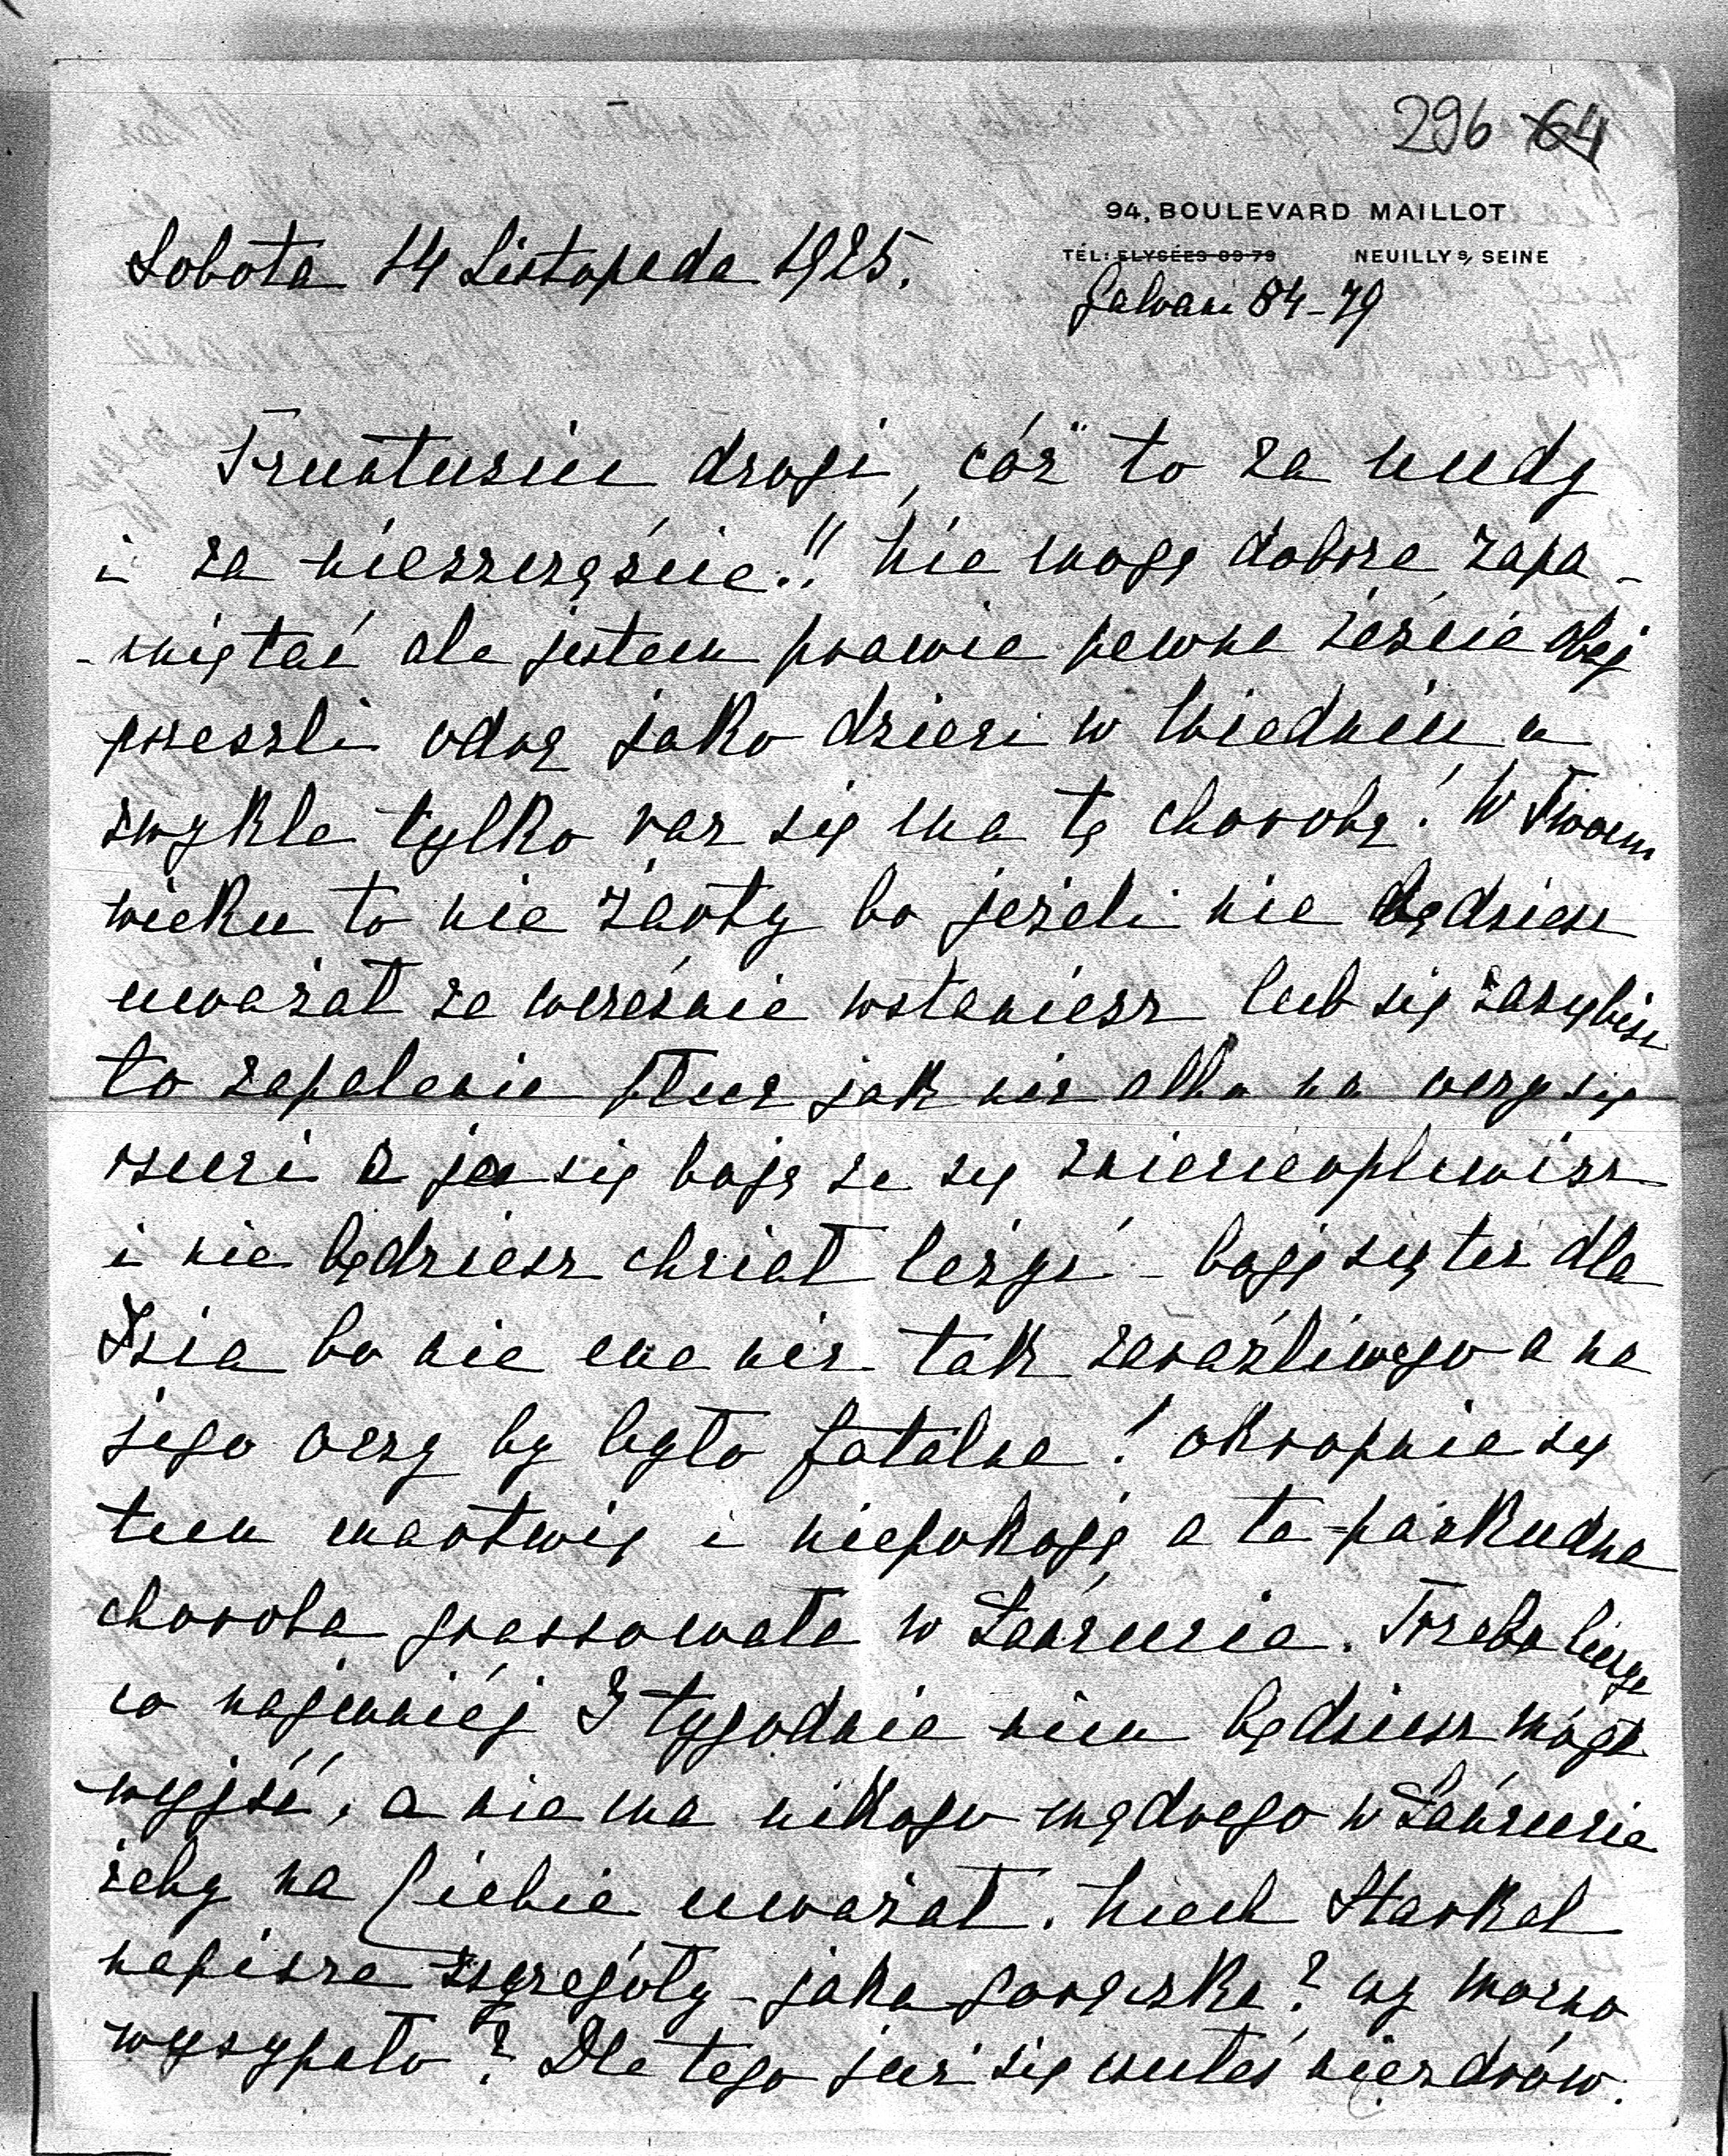 296 64
94, BOULEVARD MAILLOT
TÉL: ELYSÉES 89-79 NEUILLY S/ SEINE
Galvani 84-79
Sobota 14 Listopada 1925.
Fruntusiu drogi, cóż to za nudy
i za nieszczęście!! Nie mogę dobrze zapa-
-miętać ale jestem prawie pewna żeście obaj
przeszli odrę jako dzieci w Wiedniu a
zwykle tylko raz się ma tę chorobę! W Twoim
wieku to nie żarty bo jeżeli nie będziesz
uważał za wcześnie wstaniesz lub się zaziębisz
to zapalenie płuc jak nic albo na oczy się
rzuci a ja się boję że się zniecierpliwisz
i nie będziesz chciał leżyć - boję się też dla
Isia bo nie ma nic tak zaraźliwego a na
jego oczy by było fatalne! okropnie się
tem martwię i niepokoję a ta paskudna
choroba grassowała w Łańcucie. Trzeba liczyć
co najmniéj 3 tygodnie nim będziesz mógł
wyjść, a nie ma nikogo mądrego w Łańcucie
żeby na Ciebie uważał. Niech
napisze szczegóły - jaka gorączka? czy mocno
wysypało? Dla tego już się czułeś niezdrów.